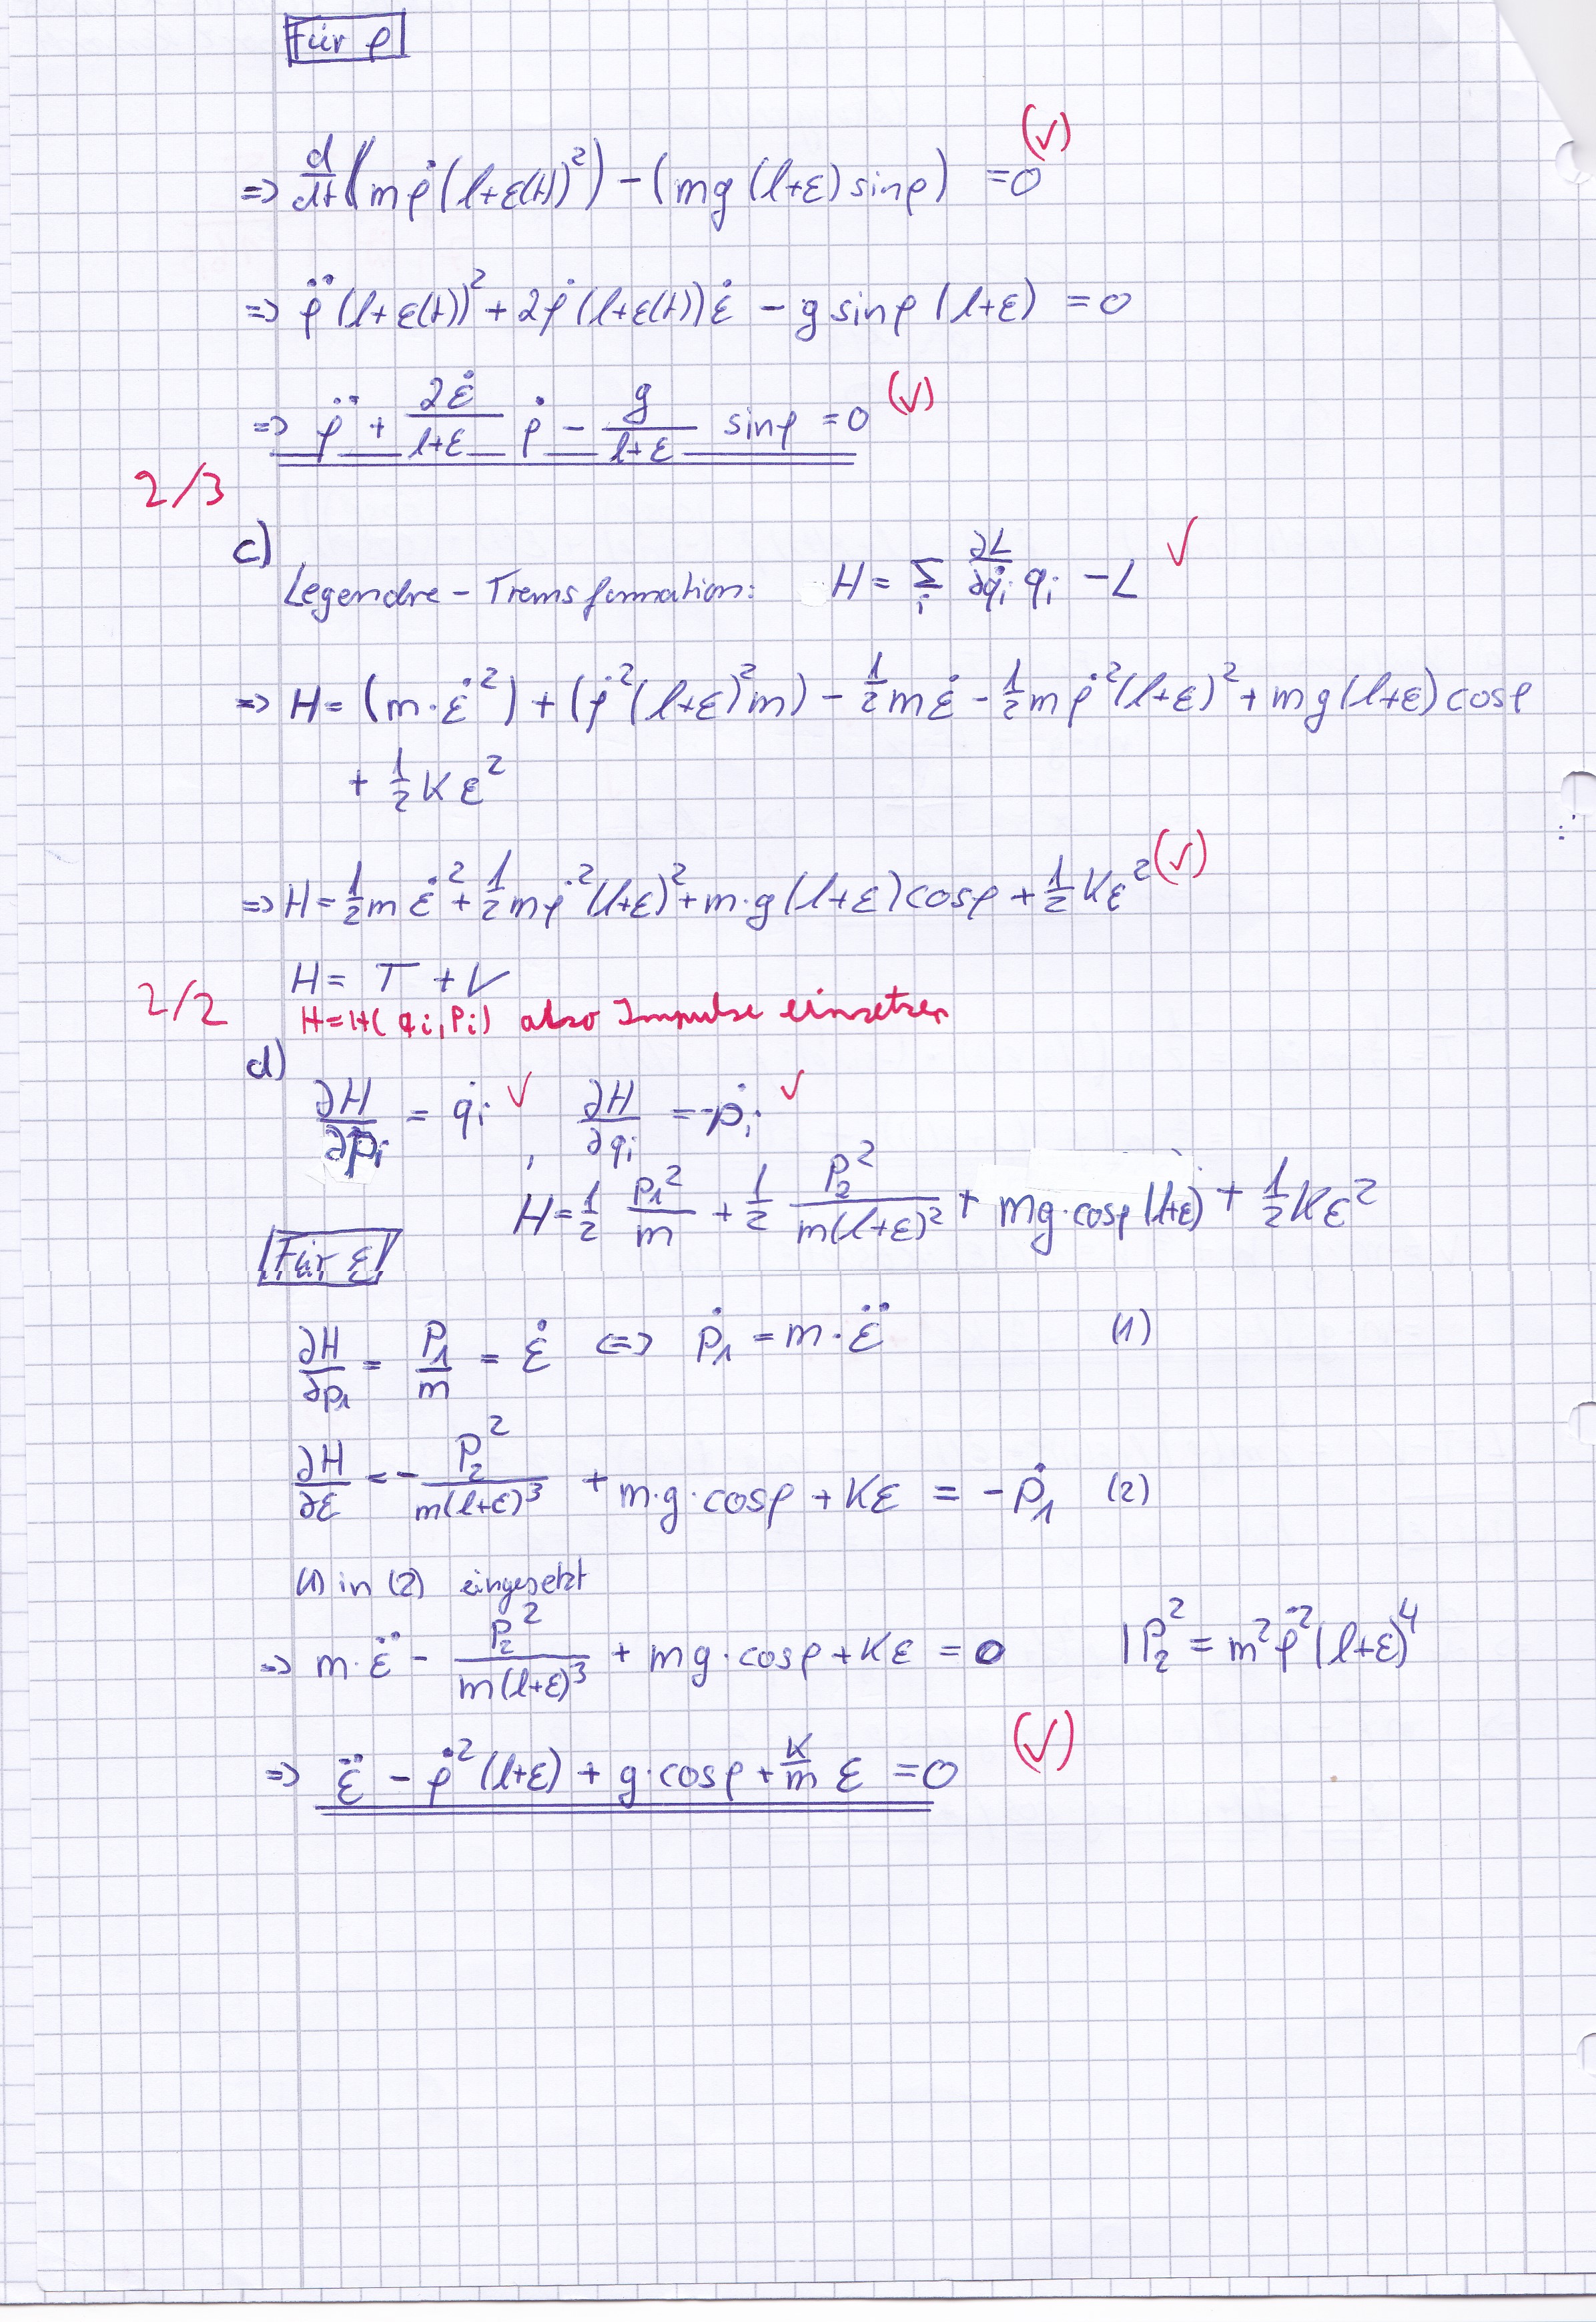 Für φ
(✓)
=> d/dt (m φ̇ (l+ε(t))²) - (mg (l+ε) sin φ) = 0
=> φ̈ (l+ε(t))² + 2φ̇ (l+ε(t)) ε̇ - g sin φ (l+ε) = 0
=> φ̈ + 2ε̇/(l+ε) φ̇ - g/(l+ε) sin φ = 0 (✓)
2/3
c)
Legendre - Transformation: H = Σ_i ∂L/∂q̇_i q_i - L ✓
=> H = (m · ε̇²) + (φ̇² (l+ε)² m) - 1/2 m ε̇ - 1/2 m φ̇² (l+ε)² + mg (l+ε) cos φ
+ 1/2 K ε²
=> H = 1/2 m ε̇² + 1/2 m φ̇² (l+ε)² + m·g (l+ε) cos φ + 1/2 K ε² (✓)
H = T + V
2/2 H = H(q_i, p_i) also Impulse einsetzen
d)
∂H/∂p_i = q̇_i ✓ , ∂H/∂q_i = -ṗ_i ✓
H = 1/2 p_1²/m + 1/2 P_2²/(m(l+ε)²) + mg·cos φ (l+ε) + 1/2 K ε²
Für ε
∂H/∂p_1 = P_1/m = ε̇ <=> ṗ_1 = m · ε̈ (1)
∂H/∂ε = - P_2²/(m(l+ε)³) + m·g·cos φ + Kε = -Ṗ_1 (2)
(1) in (2) eingesetzt
=> m·ε̈ - P_2²/(m(l+ε)³) + mg·cos φ + Kε = 0 | P_2² = m² φ̇² (l+ε)⁴
=> ε̈ - φ̇² (l+ε) + g·cos φ + K/m ε = 0 (✓)